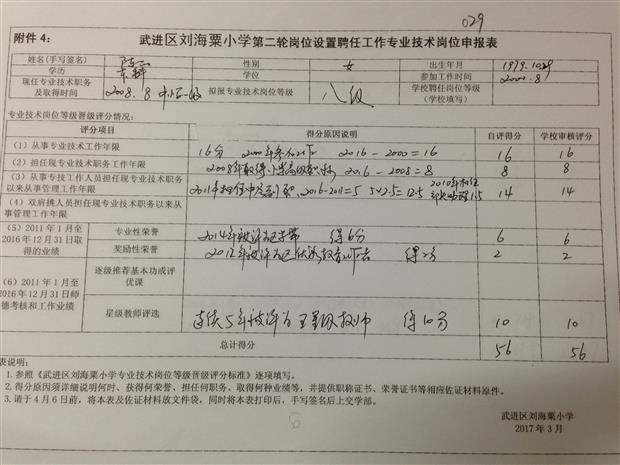 029
附件 4：
武进区刘海粟小学第二轮岗位设置聘任工作专业技术岗位申报表
姓名(手写签名) 性别 女 出生年月 1979.1029
学历 学位 参加工作时间 2000.8
现任专业技术职务及取得时间 2008.8 拟报专业技术岗位等级 八级 学校聘任岗位等级（学校填写）
专业技术岗位等级晋级评分情况：
评分项目 得分原因说明 自评得分 学校审核评分
（1）从事专业技术工作年限 16分 2000年参加工作 2016-2000=16 16 16
（2）担任现专业技术职务工作年限 2008年取得小学高级职称 2016-2008=8 8 8
（3）从事专技工作人员担任现专业技术职务以来从事管理工作年限 2016-2011=5 5×2.5=12.5 14 14
（4）双肩挑人员担任现专业技术职务以来从事管理工作年限
（5）2011 年 1 月至 2016 年 12 月 31 日取得的业绩
专业性荣誉 得6分 6 6
奖励性荣誉 得2分 2 2
（6）2011 年 1 月至 2016 年 12 月 31 日师德考核和工作业绩
逐级推荐基本功或评优课
星级教师评选 连续5年被评为五星级教师 得10分 10 10
总计得分 56 56
表说明：
1. 参照《武进区刘海粟小学专业技术岗位等级晋级评分标准》逐项填写。
2. 得分原因须详细说明何时、获得何荣誉、担任何职务、取得何种业绩等，并提供职称证书、荣誉证书等相应佐证材料原件。
3. 请于 4 月 6 日前，将本表及佐证材料放文件袋，同时将本表打印后，手写签名后上交学部。
武进区刘海粟小学
2017 年 3 月